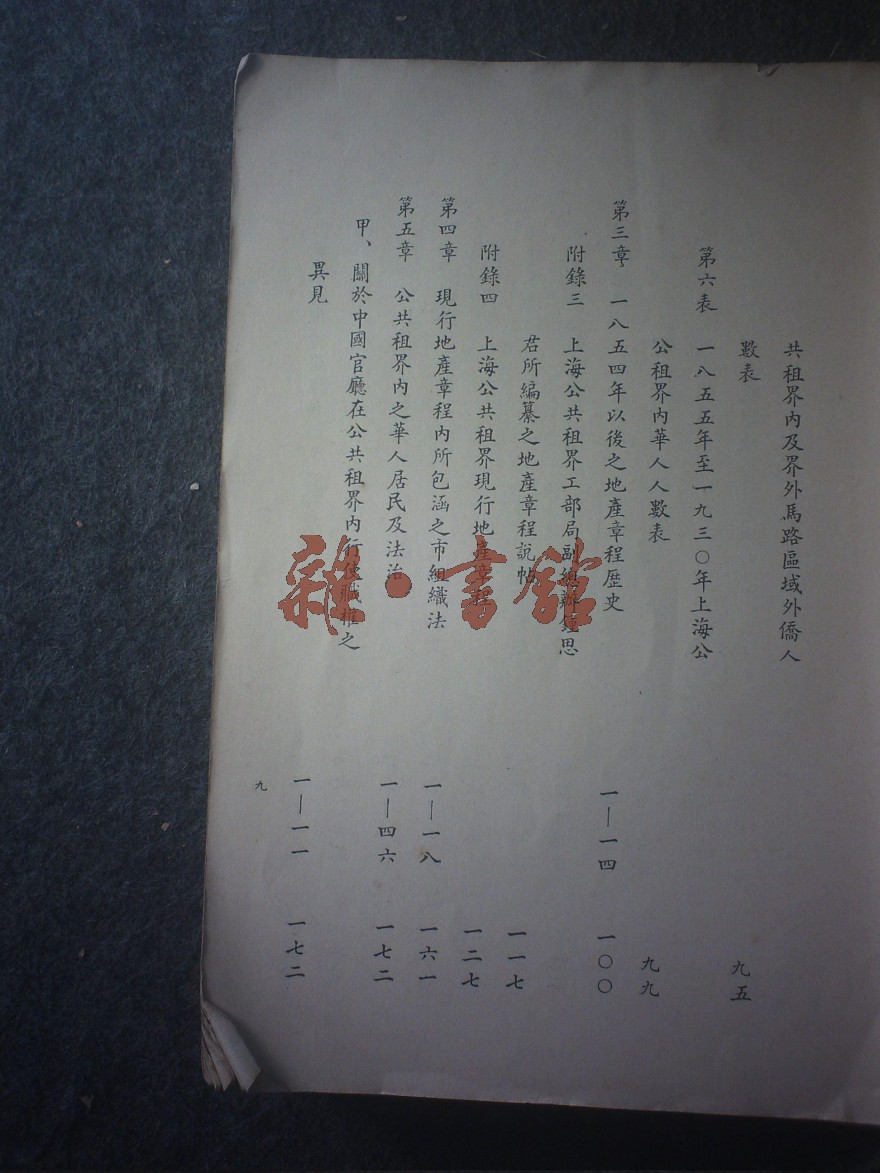 共租界內及界外馬路區域外僑人
數表 九五
第六表 一八五五年至一九三〇年上海公
公租界內華人人數表 九九
第三章 一八五四年以後之地產章程歷史 一—一四 一〇〇
附錄三 上海公共租界工部局副總辦鍾思
君所編纂之地產章程說帖 一一七
附錄四 上海公共租界現行地產章程 一二七
第四章 現行地產章程內所包涵之市組織法 一—一八 一六一
第五章 公共租界內之華人居民及法治 一—四六 一七二
甲、關於中國官廳在公共租界內行使職權之
異見 一—一一 一七二
九
雜·書館